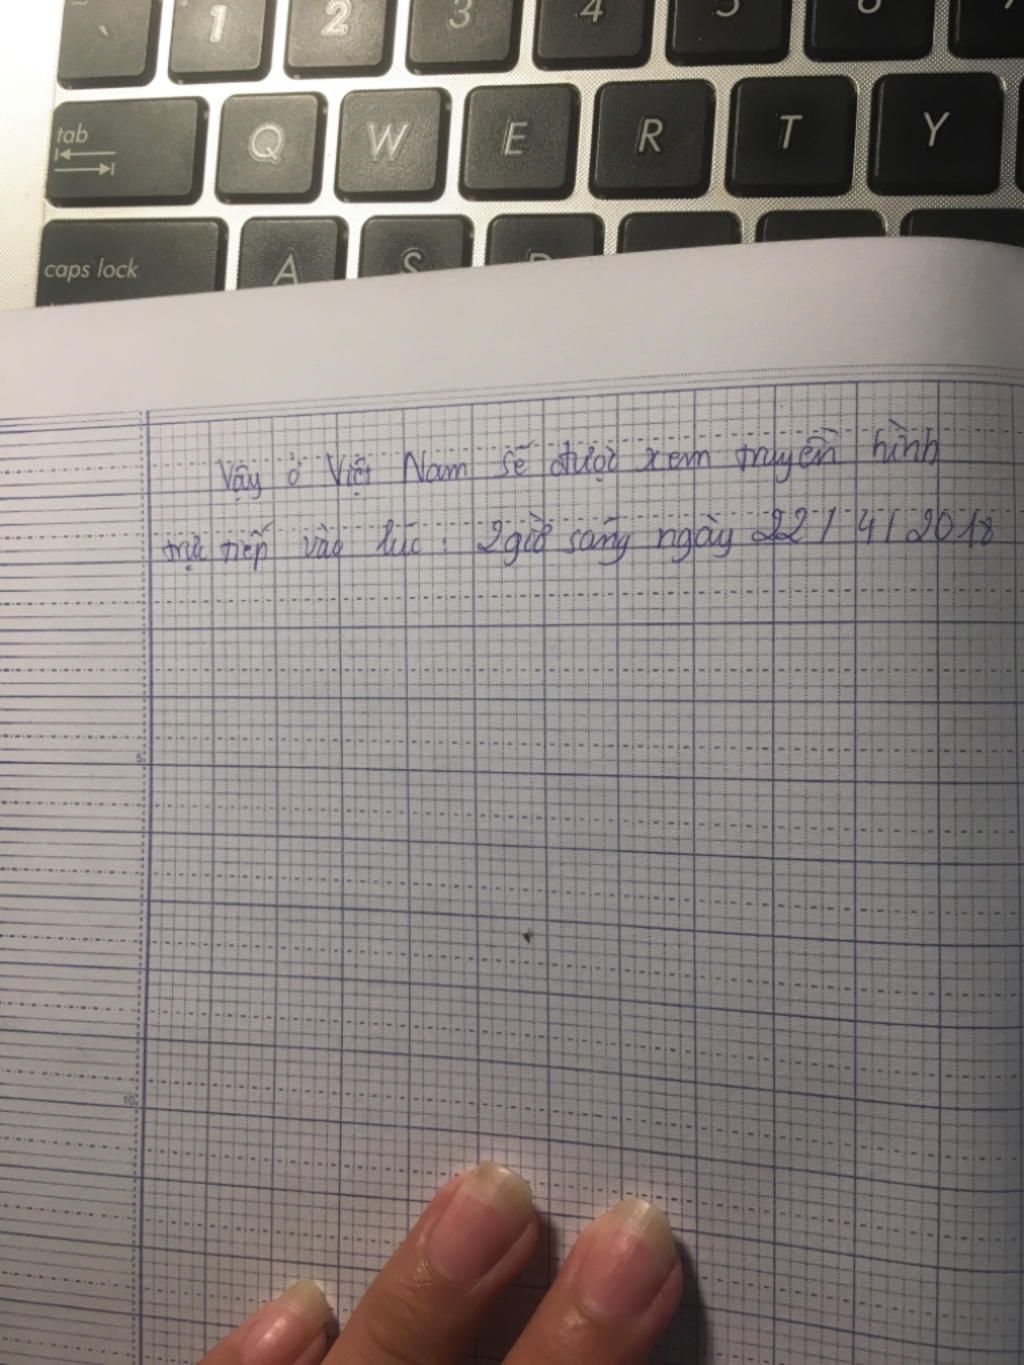 ` 1 2 3 4 5 6
tab Q W E R T Y
caps lock A S D
Vậy ở Việt Nam sẽ được xem truyền hình
trực tiếp vào lúc : 2 giờ sáng ngày 22 / 4 / 2018
5
10